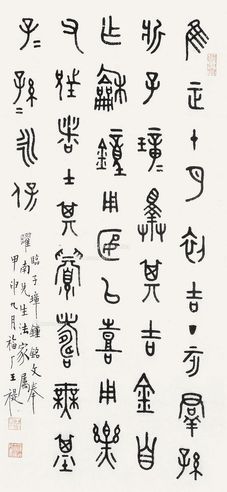 隹正十月初吉丁亥羣孫
斨子璋=擇其吉金自
乍龢鐘用匽以喜用樂
父兄者士其眉壽無基
子=孫=永保
臨子璋鐘銘文奉
躍南先生法家屬
甲申九月福厂王禔